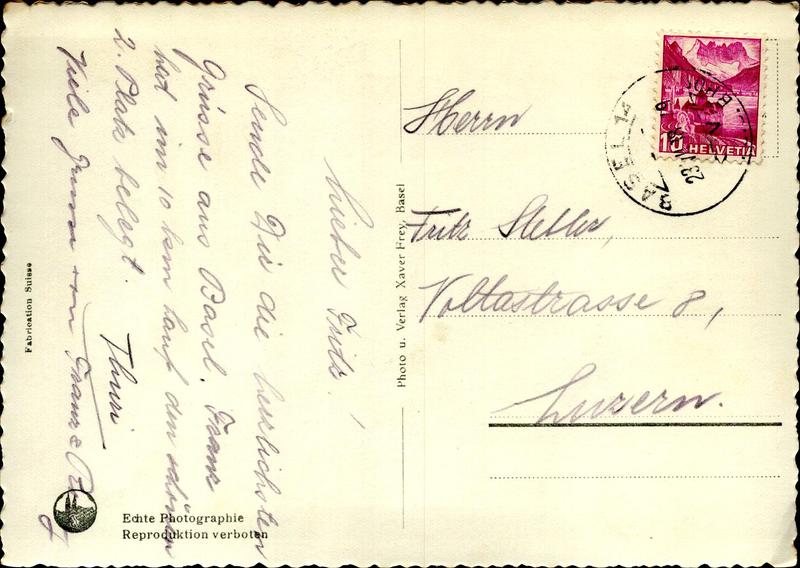 Lieber Fritz!
Sende Dir die herzlichsten
Grüsse aus Basel. Franz
hat im 10 kem lauf den schönen
2. Platz belegt.
Thuri
Viele von Franz &
Fabrication Suisse
Echte Photographie
Reproduktion verboten
Photo u. Verlag Xaver Frey, Basel
10 HELVETIA
BASEL 14
Herrn
Fritz Stebler,
Voltastrasse 8,
Luzern.